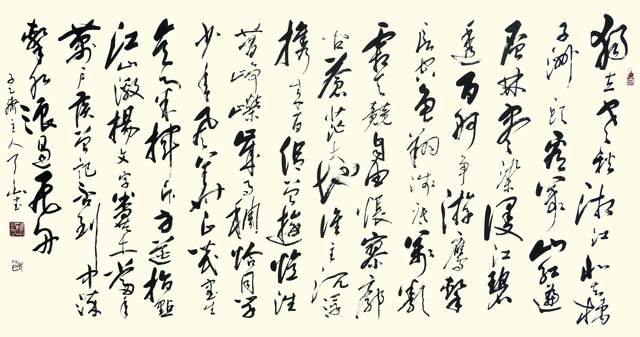 独立寒秋湘江北去橘
子洲头看万山红遍
层林尽染漫江碧
透百舸争流鹰击
长空鱼翔浅底万类
霜天竞自由怅寥廓
问苍茫大地谁主沉浮
携来百侣曾游忆往
昔峥嵘岁月稠恰同学
少年风华正茂书生
意气挥斥方遒指点
江山激扬文字粪土当年
万户侯曾记否到中流
击水浪遏飞舟
主人